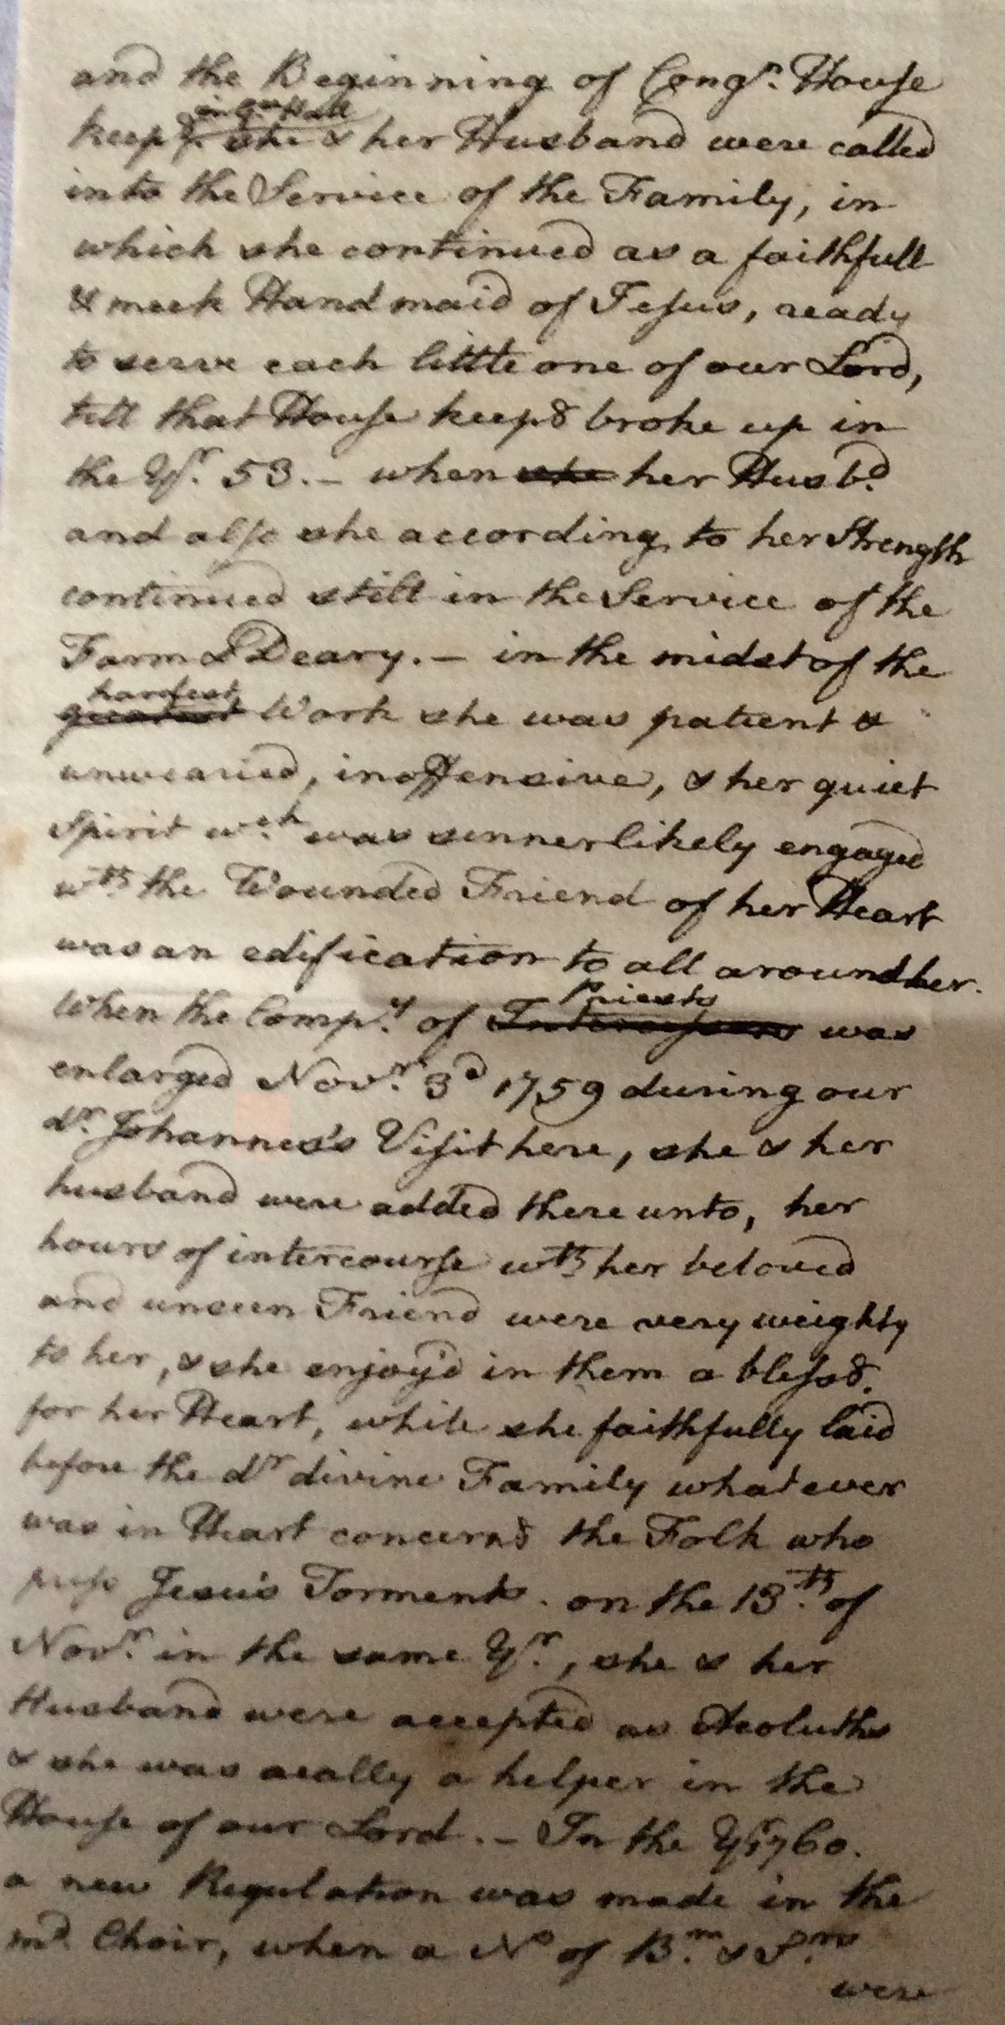 and the Beginning of Congn. House
keepg. she & her Husband were called
into the Service of the Family, in
which she continued as a faithfull
& meek Handmaid of Jesus, ready
to serve each little one of our Lord,
till that House keepg broke up in
the Yr. 53. – when she her Husbd.
and also she according to her Strength
continued still in the Service of the
Farm & Deary. – in the midst of the
hardest
greatest Work she was patient &
unwearied, inoffensive, & her quiet
Spirit wch. was sinnerlikely engaged
wth the Wounded Friend of her Heart
was an edification to all around her.
Priests
When the Compy. of Intercessors was
enlarged Novr. 3d 1759 during our
dr. Johannes's Visit here, she & her
husband were added there unto, her
hours of intercourse wth her beloved
and unseen Friend were very weighty
to her, & she enjoy'd in them a blessg.
for her Heart, while she faithfully laid
before the dr divine Family whatever
was in Heart concerng the Folk who
Jesu's Torments. on the 13th. of
Novr. in the same Yr., she & her
Husband were accepted as Acoluths
& she was really a helper in the
House of our Lord. – In the Yr 1760.
a new Regulation was made in the
md. Choir, when a No of Brn. & Srs
were